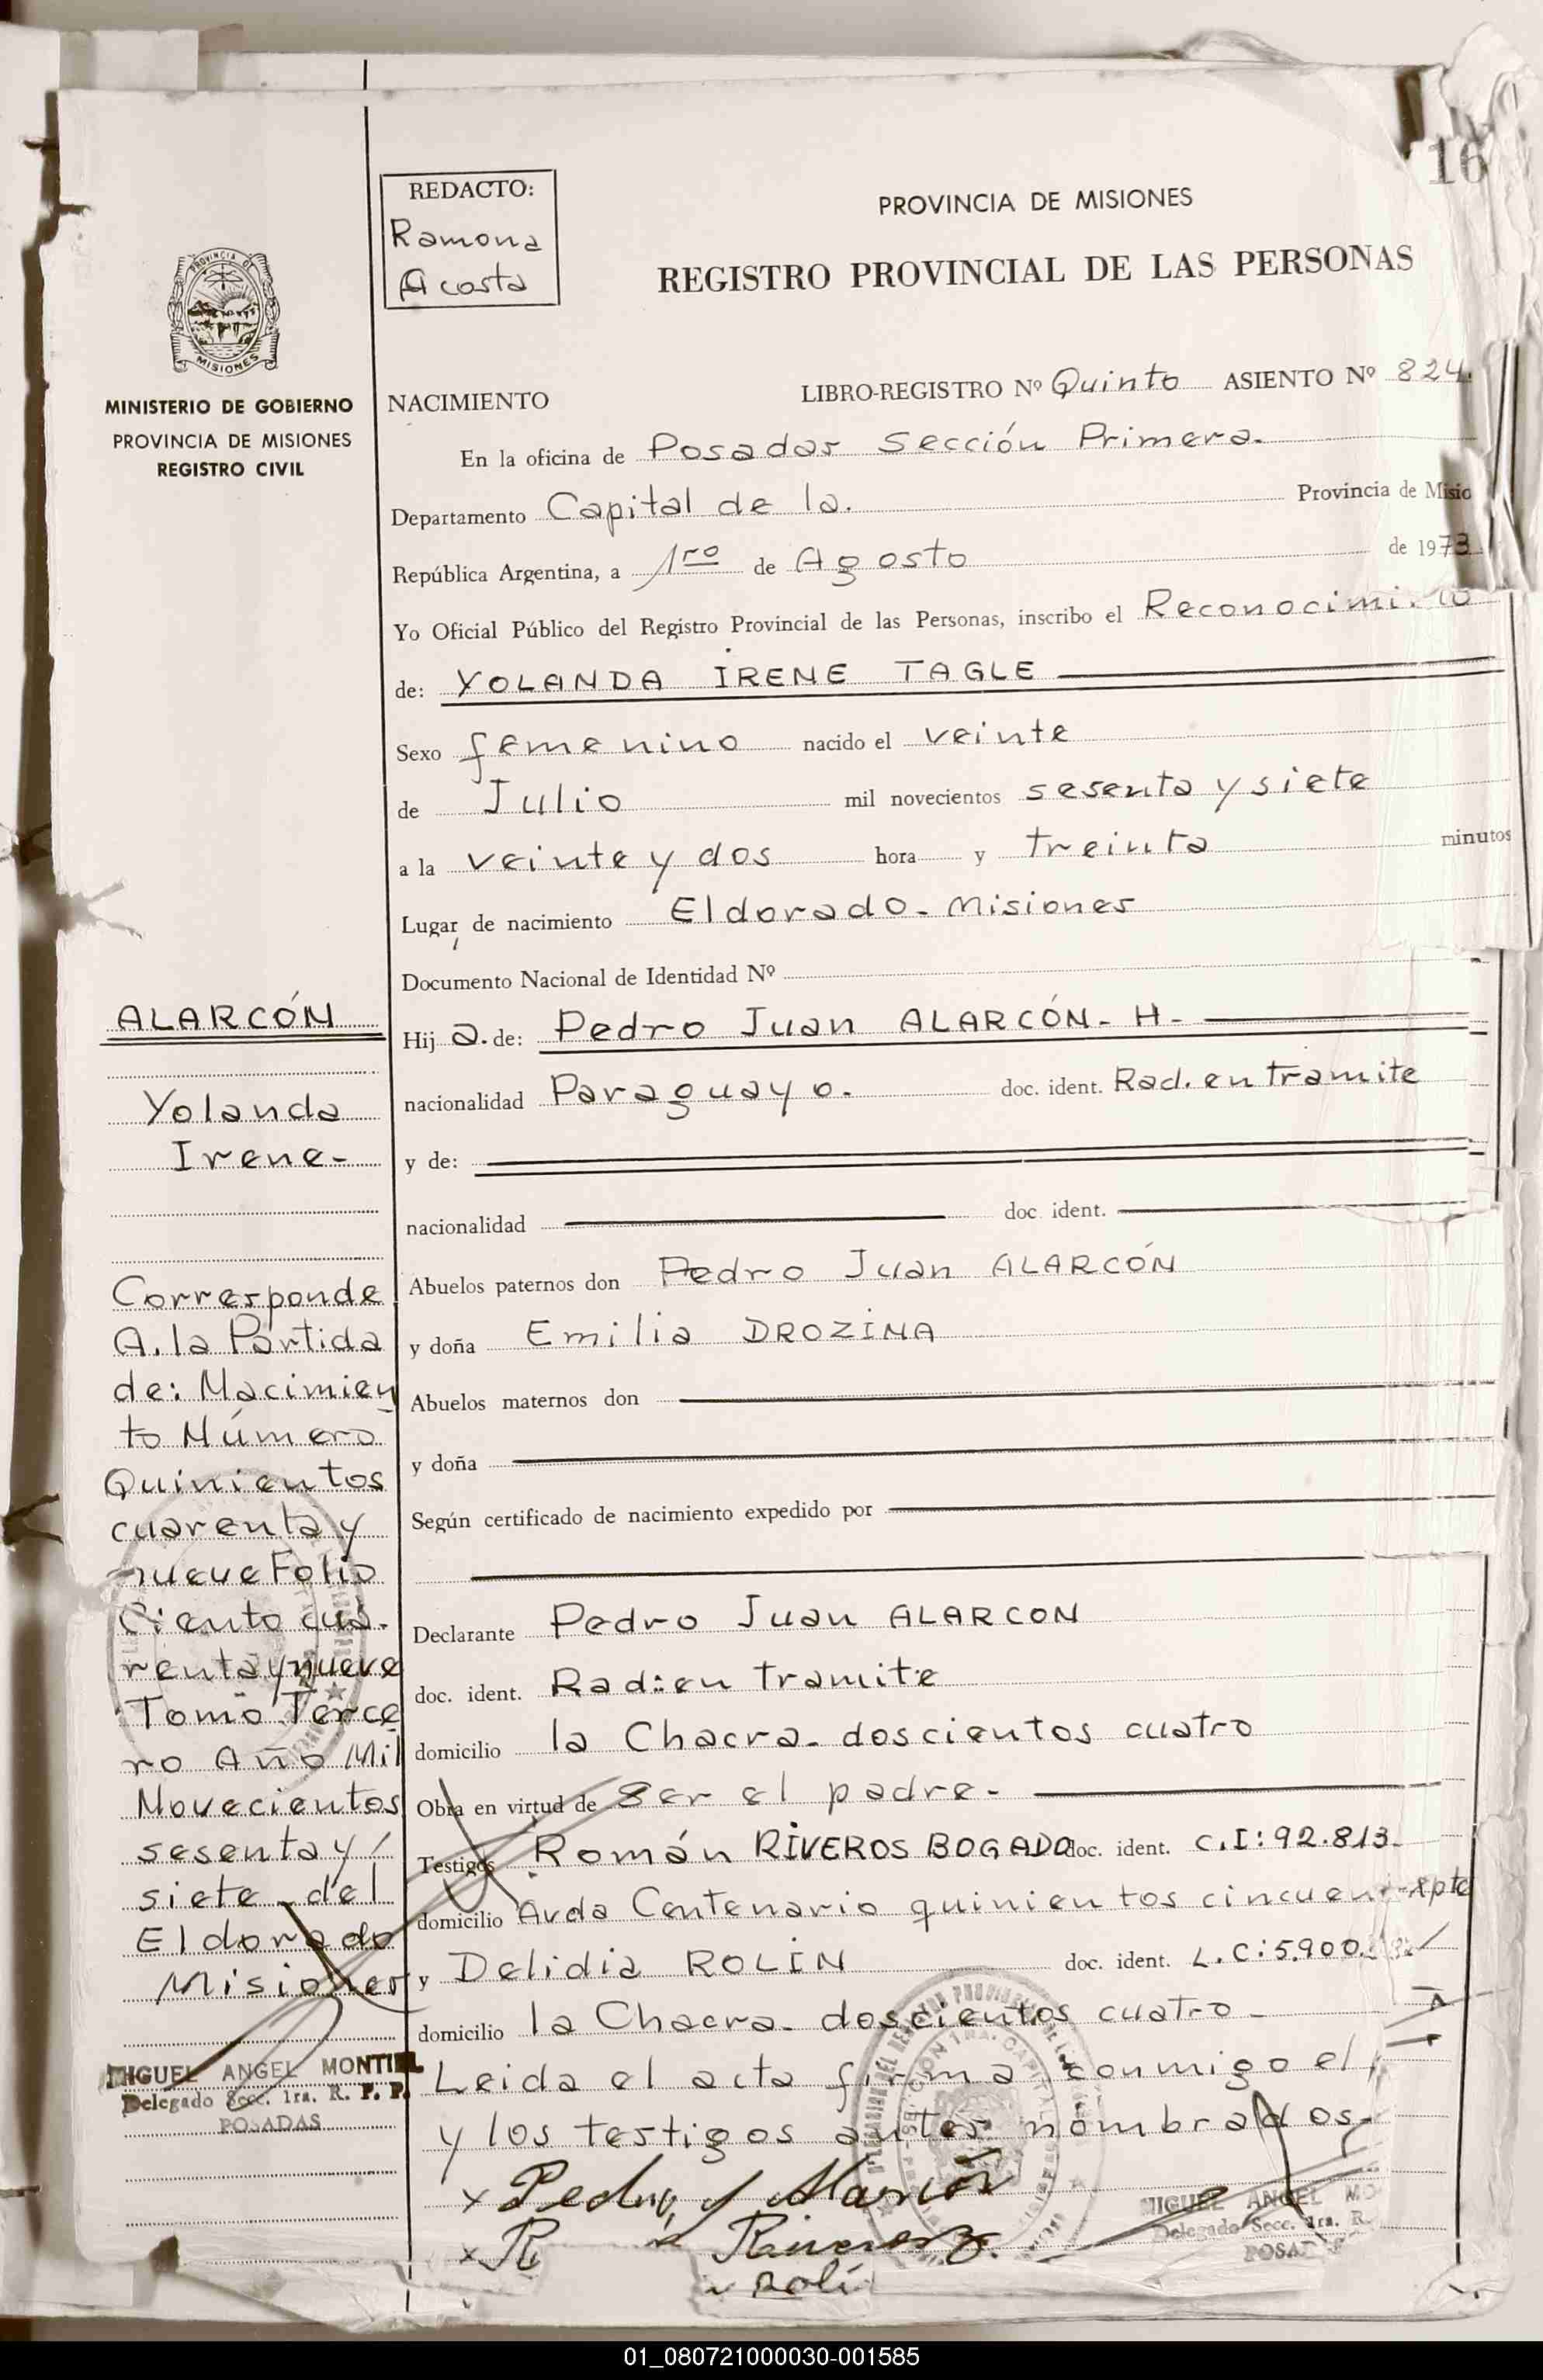 16
REDACTO:
Ramona
Acosta
PROVINCIA DE MISIONES
REGISTRO PROVINCIAL DE LAS PERSONAS
PROVINCIA DE
MISIONES
MINISTERIO DE GOBIERNO
PROVINCIA DE MISIONES
REGISTRO CIVIL
NACIMIENTO
LIBRO-REGISTRO Nº Quinto ASIENTO Nº 824.
En la oficina de Posadas Sección Primera.
Departamento Capital de la. Provincia de Misio
República Argentina, a 1ro de Agosto de 1973
Yo Oficial Público del Registro Provincial de las Personas, inscribo el
de: YOLANDA IRENE TAGLE
Sexo femenino nacido el veinte
de Julio mil novecientos sesenta y siete
a la veinte y dos hora y treinta minutos
Lugar de nacimiento Eldorado - Misiones
Documento Nacional de Identidad Nº
Hij a. de: Pedro Juan ALARCÓN - H -
nacionalidad Paraguayo. doc. ident. Rad. en tramite
y de:
nacionalidad doc. ident.
Abuelos paternos don Pedro Juan ALARCÓN
y doña Emilia DROZINA
Abuelos maternos don
y doña
Según certificado de nacimiento expedido por
Declarante Pedro Juan ALARCON
doc. ident. Rad: en tramite
domicilio la Chacra - doscientos cuatro
Obra en virtud de Ser el padre -
Testigos Román RIVEROS BOGADO doc. ident. C.I: 92.813-
domicilio Avda Centenario quinientos
y Delidia ROLIN doc. ident. L.C: 5.900.
domicilio la Chacra - doscientos cuatro -
Leida el acta firma conmigo el
y los testigos antes nombrados -
x Pedro J Alarcón
x R Riveros B.
MIGUEL ANGEL MO
Delegado Secc. 1ra. R.
POSAD
ALARCÓN
Yolanda
Irene -
Corresponde
A. la Partida
de: Nacimien
to Número
Quinientos
cuarenta y
nueve Folio
Ciento cua-
renta y nueve
Tomo Terce
ro Año Mil
Novecientos
sesenta y /
siete - del
Eldorado
Misiones
MIGUEL ANGEL MONTIEL
Delegado Secc. 1ra. R. P. P.
POSADAS
01_080721000030-001585